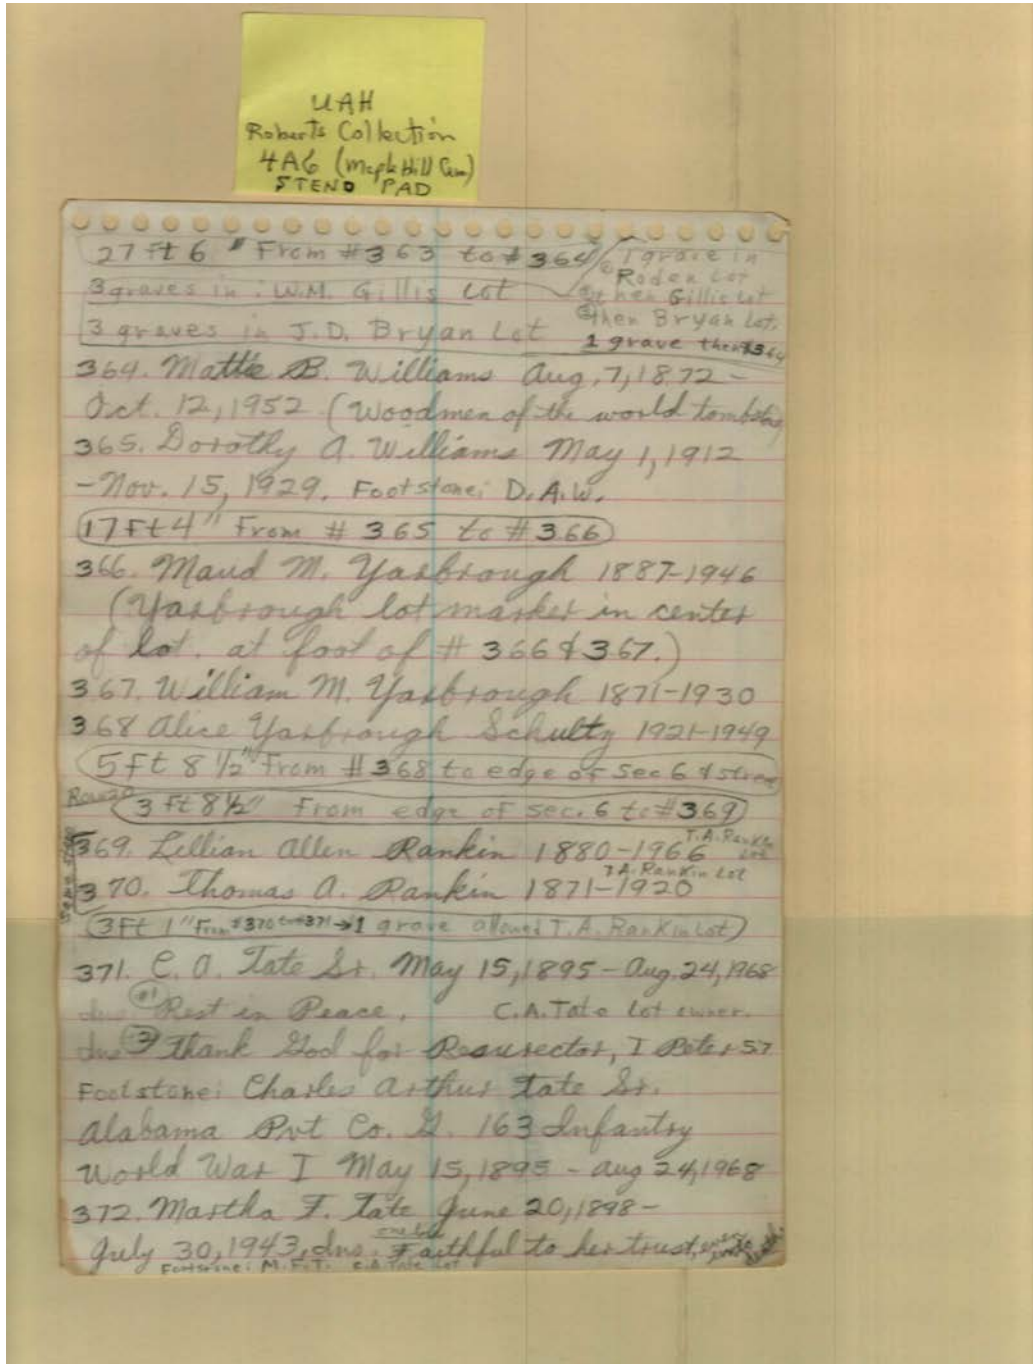 UAH
Roberts Collection
4A6 (Maple Hill Cem)
STENO PAD
27 ft 6 " From #363 to #364
1 grave in
Roden Lot
then Gillis Lot
then Bryan Lot.
1 grave then #364
3 graves in : W.M. Gillis Lot
3 graves in J.D. Bryan Lot
364. Mattie B. Williams Aug. 7, 1872 -
Oct. 12, 1952 (Woodmen of the world tombstone
365. Dorothy A. Williams May 1, 1912
- Nov. 15, 1929. Footstone: D.A.W.
17 Ft 4" From # 365 to # 366
366. Maud M. Yarbrough 1887-1946
(Yarbrough lot marker in center
of lot. at foot of # 366 & 367.)
367. William M. Yarbrough 1871-1930
368 Alice Yarbrough Schultz 1921-1949
5 Ft 8 1/2" From #368 to edge of Sec 6 & street
Row 20
3 Ft 8 1/2" From edge of sec. 6 to #369
369. Lillian Allen Rankin 1880-1966 T.A. Rankin Lot
370. Thomas A. Rankin 1871-1920 T.A. Rankin Lot
Same stone
3 Ft 1" From #370 to #371 → 1 grave allowed T.A. Rankin Lot)
371. C. A. Tate Sr. May 15, 1895 - Aug. 24, 1968
Ins #1 Rest in Peace. C.A. Tate Lot owner.
Ins #2 Thank God for Resurector, I Peter 57
Footstone: Charles Arthur Tate Sr.
Alabama Pvt Co. G. 163 Infantry
World War I May 15, 1895 - Aug 24, 1968
372. Martha F. Tate June 20, 1898 -
July 30, 1943, Ins. Faithful to her trust, even unto death.
Footstone: M.F.T. C.A. Tate Lot